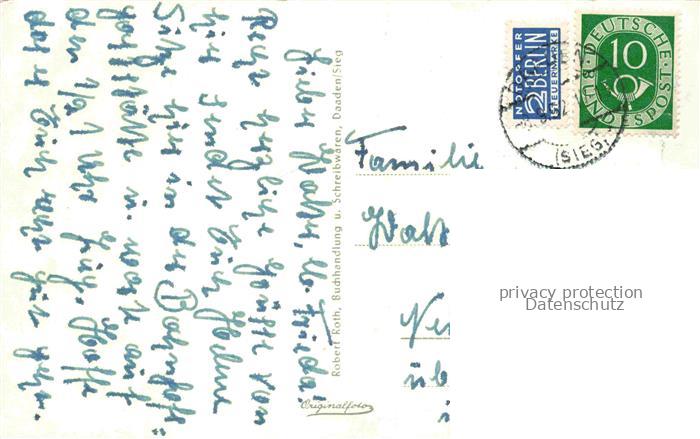 Lieber Walter, lb. Frieda!
Recht herzliche Grüße von
hier sendet Euch Helene
Sitze hier in der Bahnhofs-
gaststätte u. warte auf
den 1/2 1 Uhr Zug. Hoffe
daß es Euch recht gut geht.
Robert Roth, Buchhandlung u. Schreibwaren, Daaden/Sieg
Originalfoto
NOTOPFER
2 BERLIN
STEUERMARKE
DEUTSCHE
10
BUNDESPOST
(SIEG)
Familie
Walt
Ne
üb
privacy protection
Datenschutz